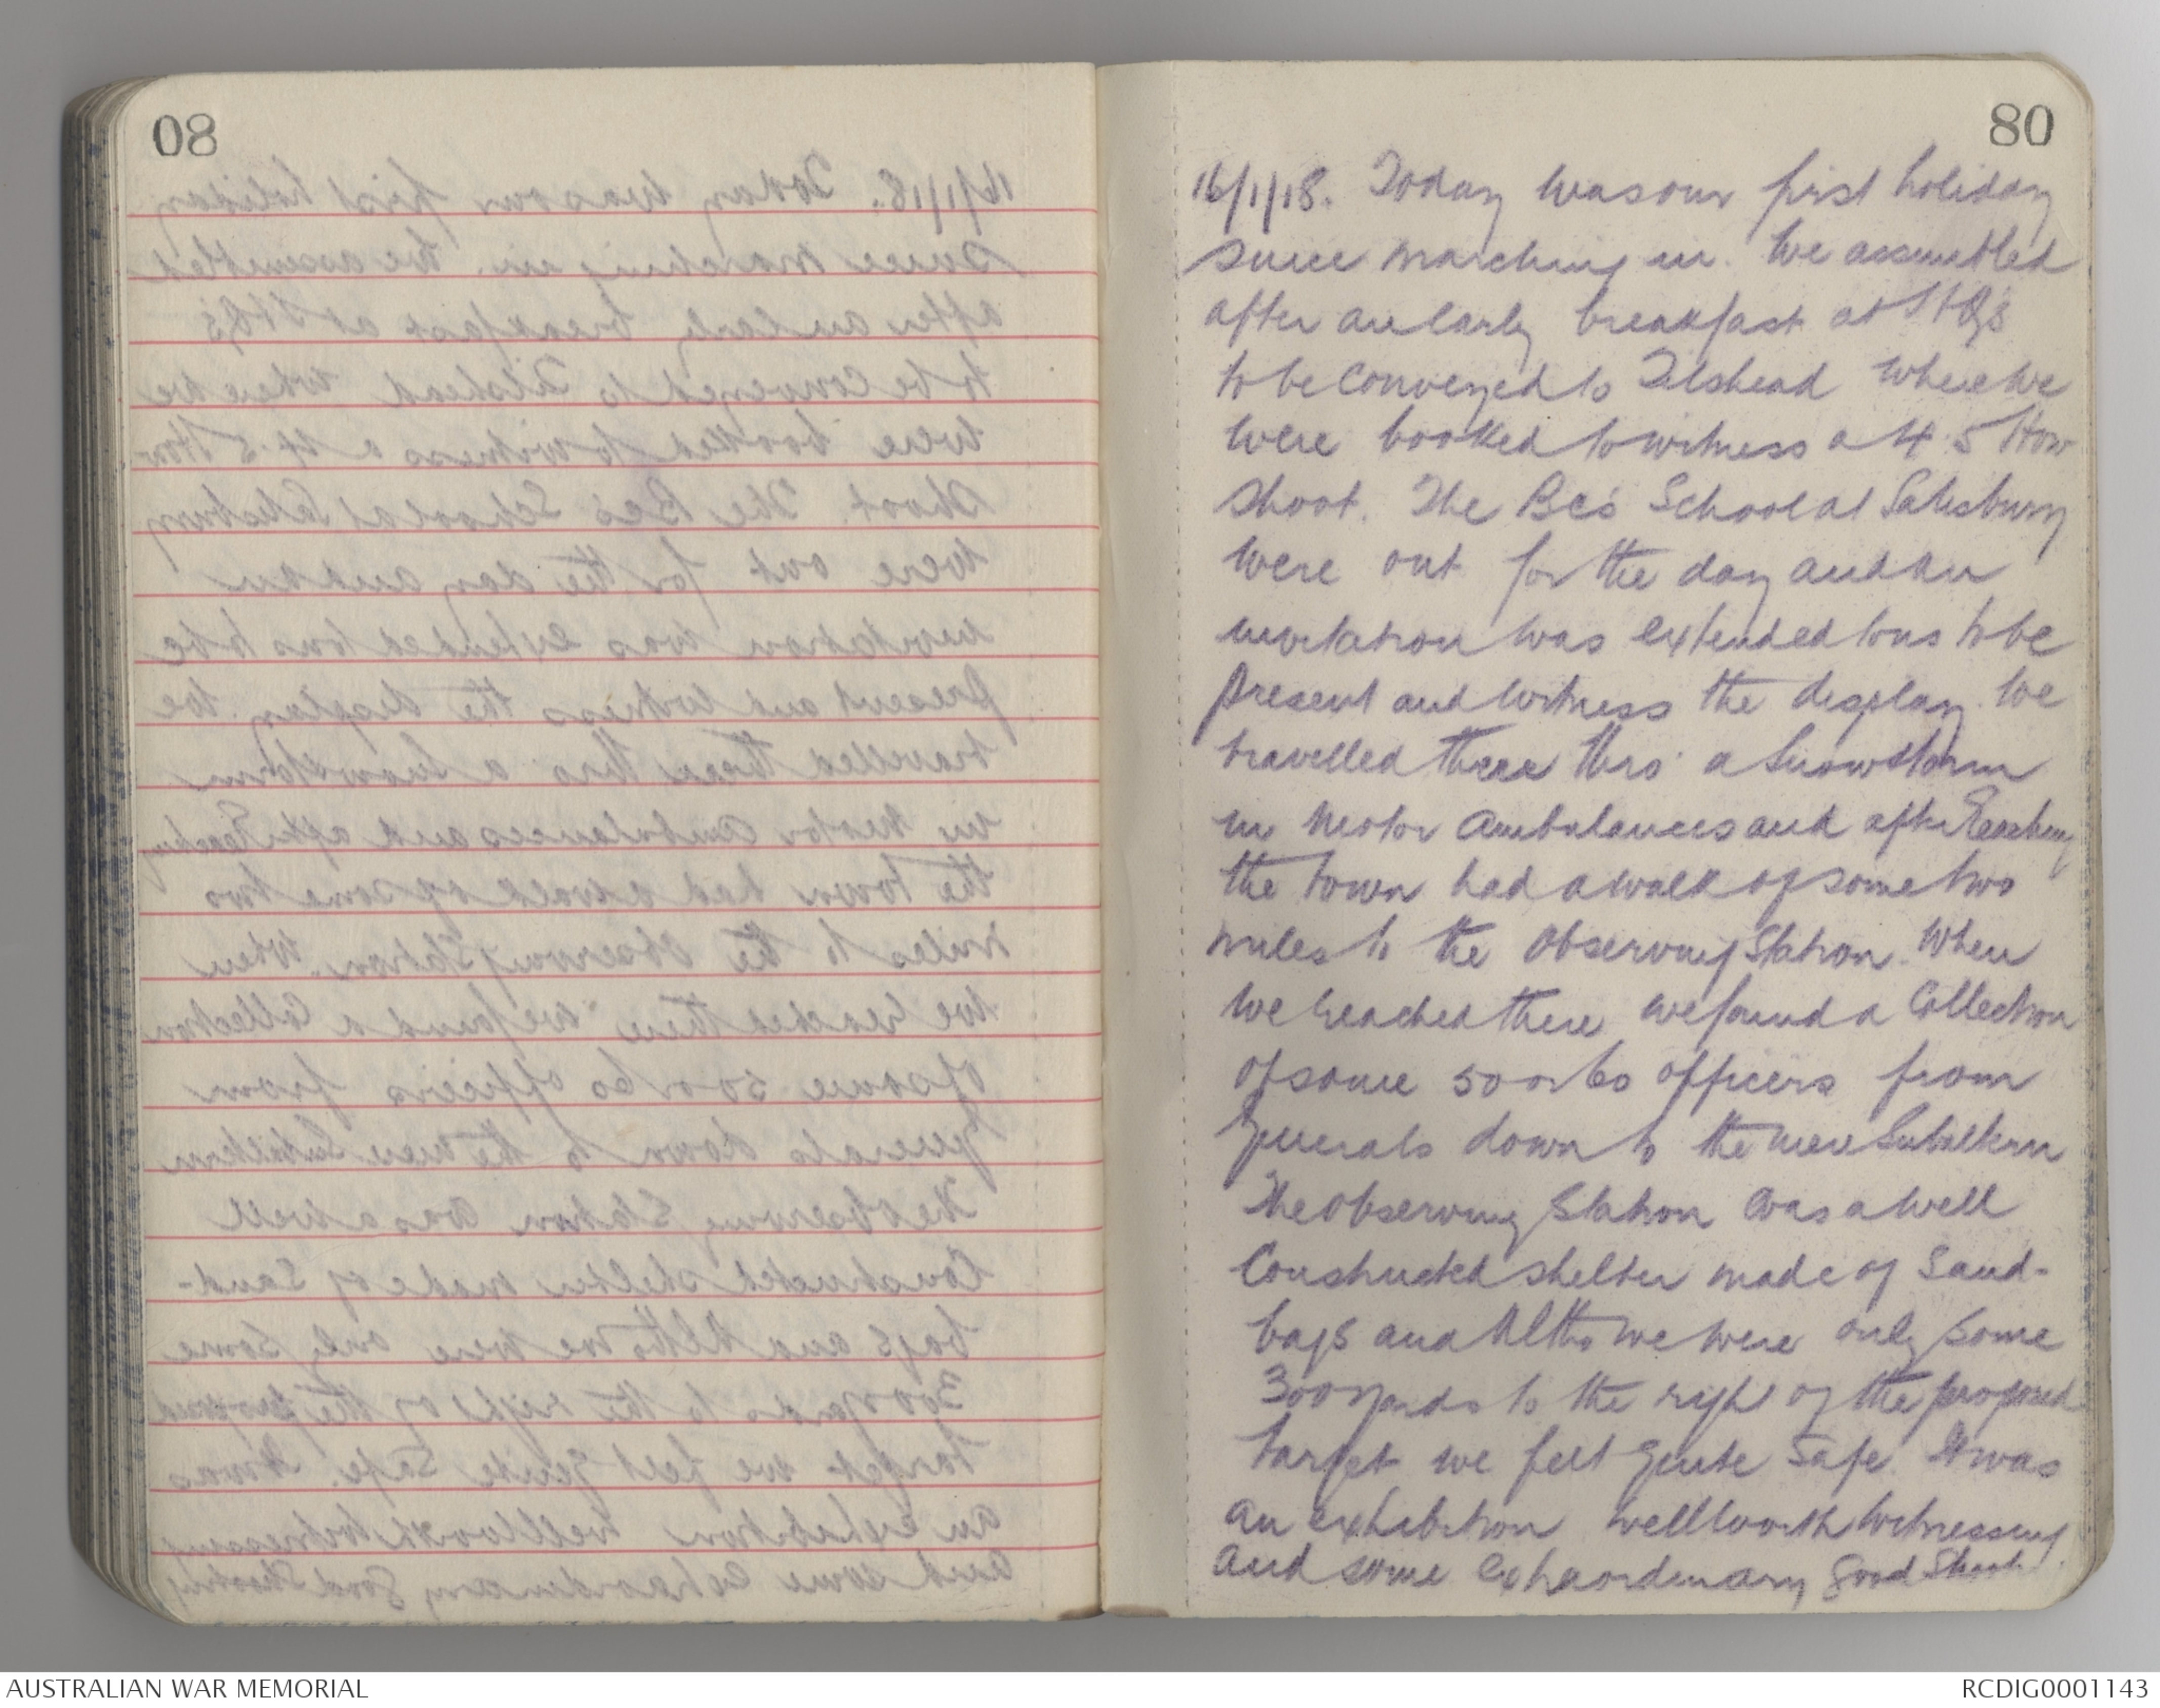 80
16/1/18. Today was our first holiday
since marching in. We assembled
after an early breakfast at HQ's
to be conveyed to Tilshead where we
were booked to witness a 4.5 How
shoot. The BC's School at Salisbury
were out for the day and an
invitation was extended to us to be
present and witness the display. We
travelled there thro' a snowstorm
in motor ambulances and after reaching
the town had a walk of some two
miles to the Observing Station. When
we reached there we found a Collection
of some 50 or 60 officers from
Generals down to the mere Subaltern
The Observing Station was a well
Constructed shelter made of Sand-
bags and Altho we were only some
300 yards to the right of the proposed
target we felt quite safe. It was
an exhibition well worth witnessing
and some extraordinary good Shooting
AUSTRALIAN WAR MEMORIAL
RCDIG0001143